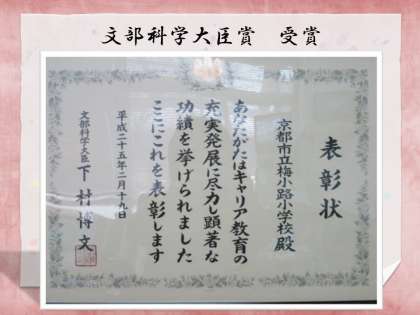 文部科学大臣賞　受賞
表彰状
京都市立梅小路小学校殿
あなたがたはキャリア教育の
充実発展に尽力し顕著な
功績を挙げられました
ここにこれを表彰します
平成二十五年二月十九日
文部科学大臣 下村博文